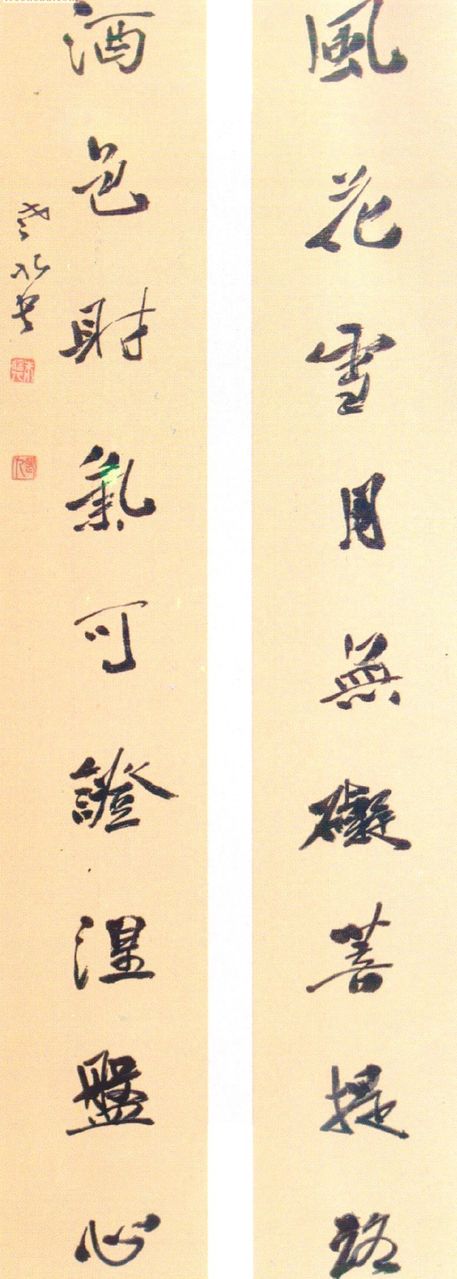 風花雪月無礙菩提路
酒色財氣可證湼盤心